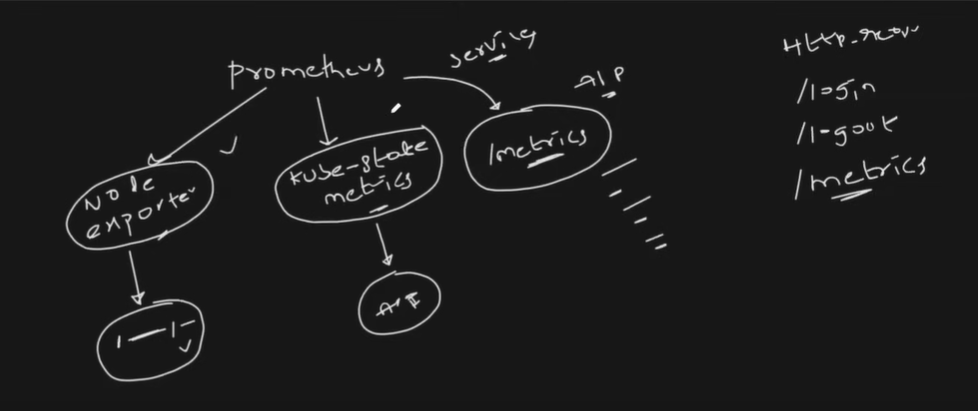 Prometheus
service
Node
exporter
Kube-state
metrics
/metrics
API
/login
/logout
/metrics